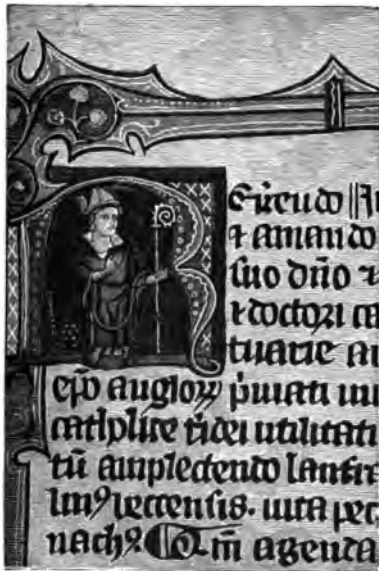 Reuerendo
⁊ amando
suo dño ⁊
⁊ doctori ca
tuarie ar
epō angloꝝ pͥmati
catholice fidei utilitati
tū amplectendo lanfr
lmꝰ beccensis. uita pec
nachꝰ. Qm̄ agenda